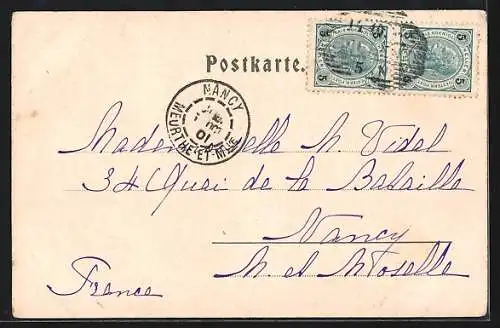 Postkarte.
5 5 5 5
NANCY
01
MEURTHE-ET-MLLE
Mademoiselle M. Vidal
34 Quai de la Bataille
Nancy
M. et Moselle
France